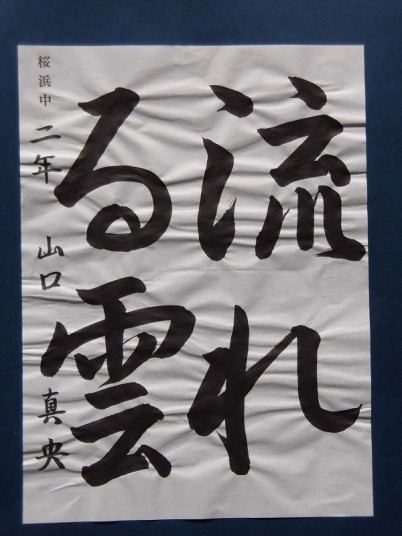 流れ
る雲
桜浜中 二年 山口 真央